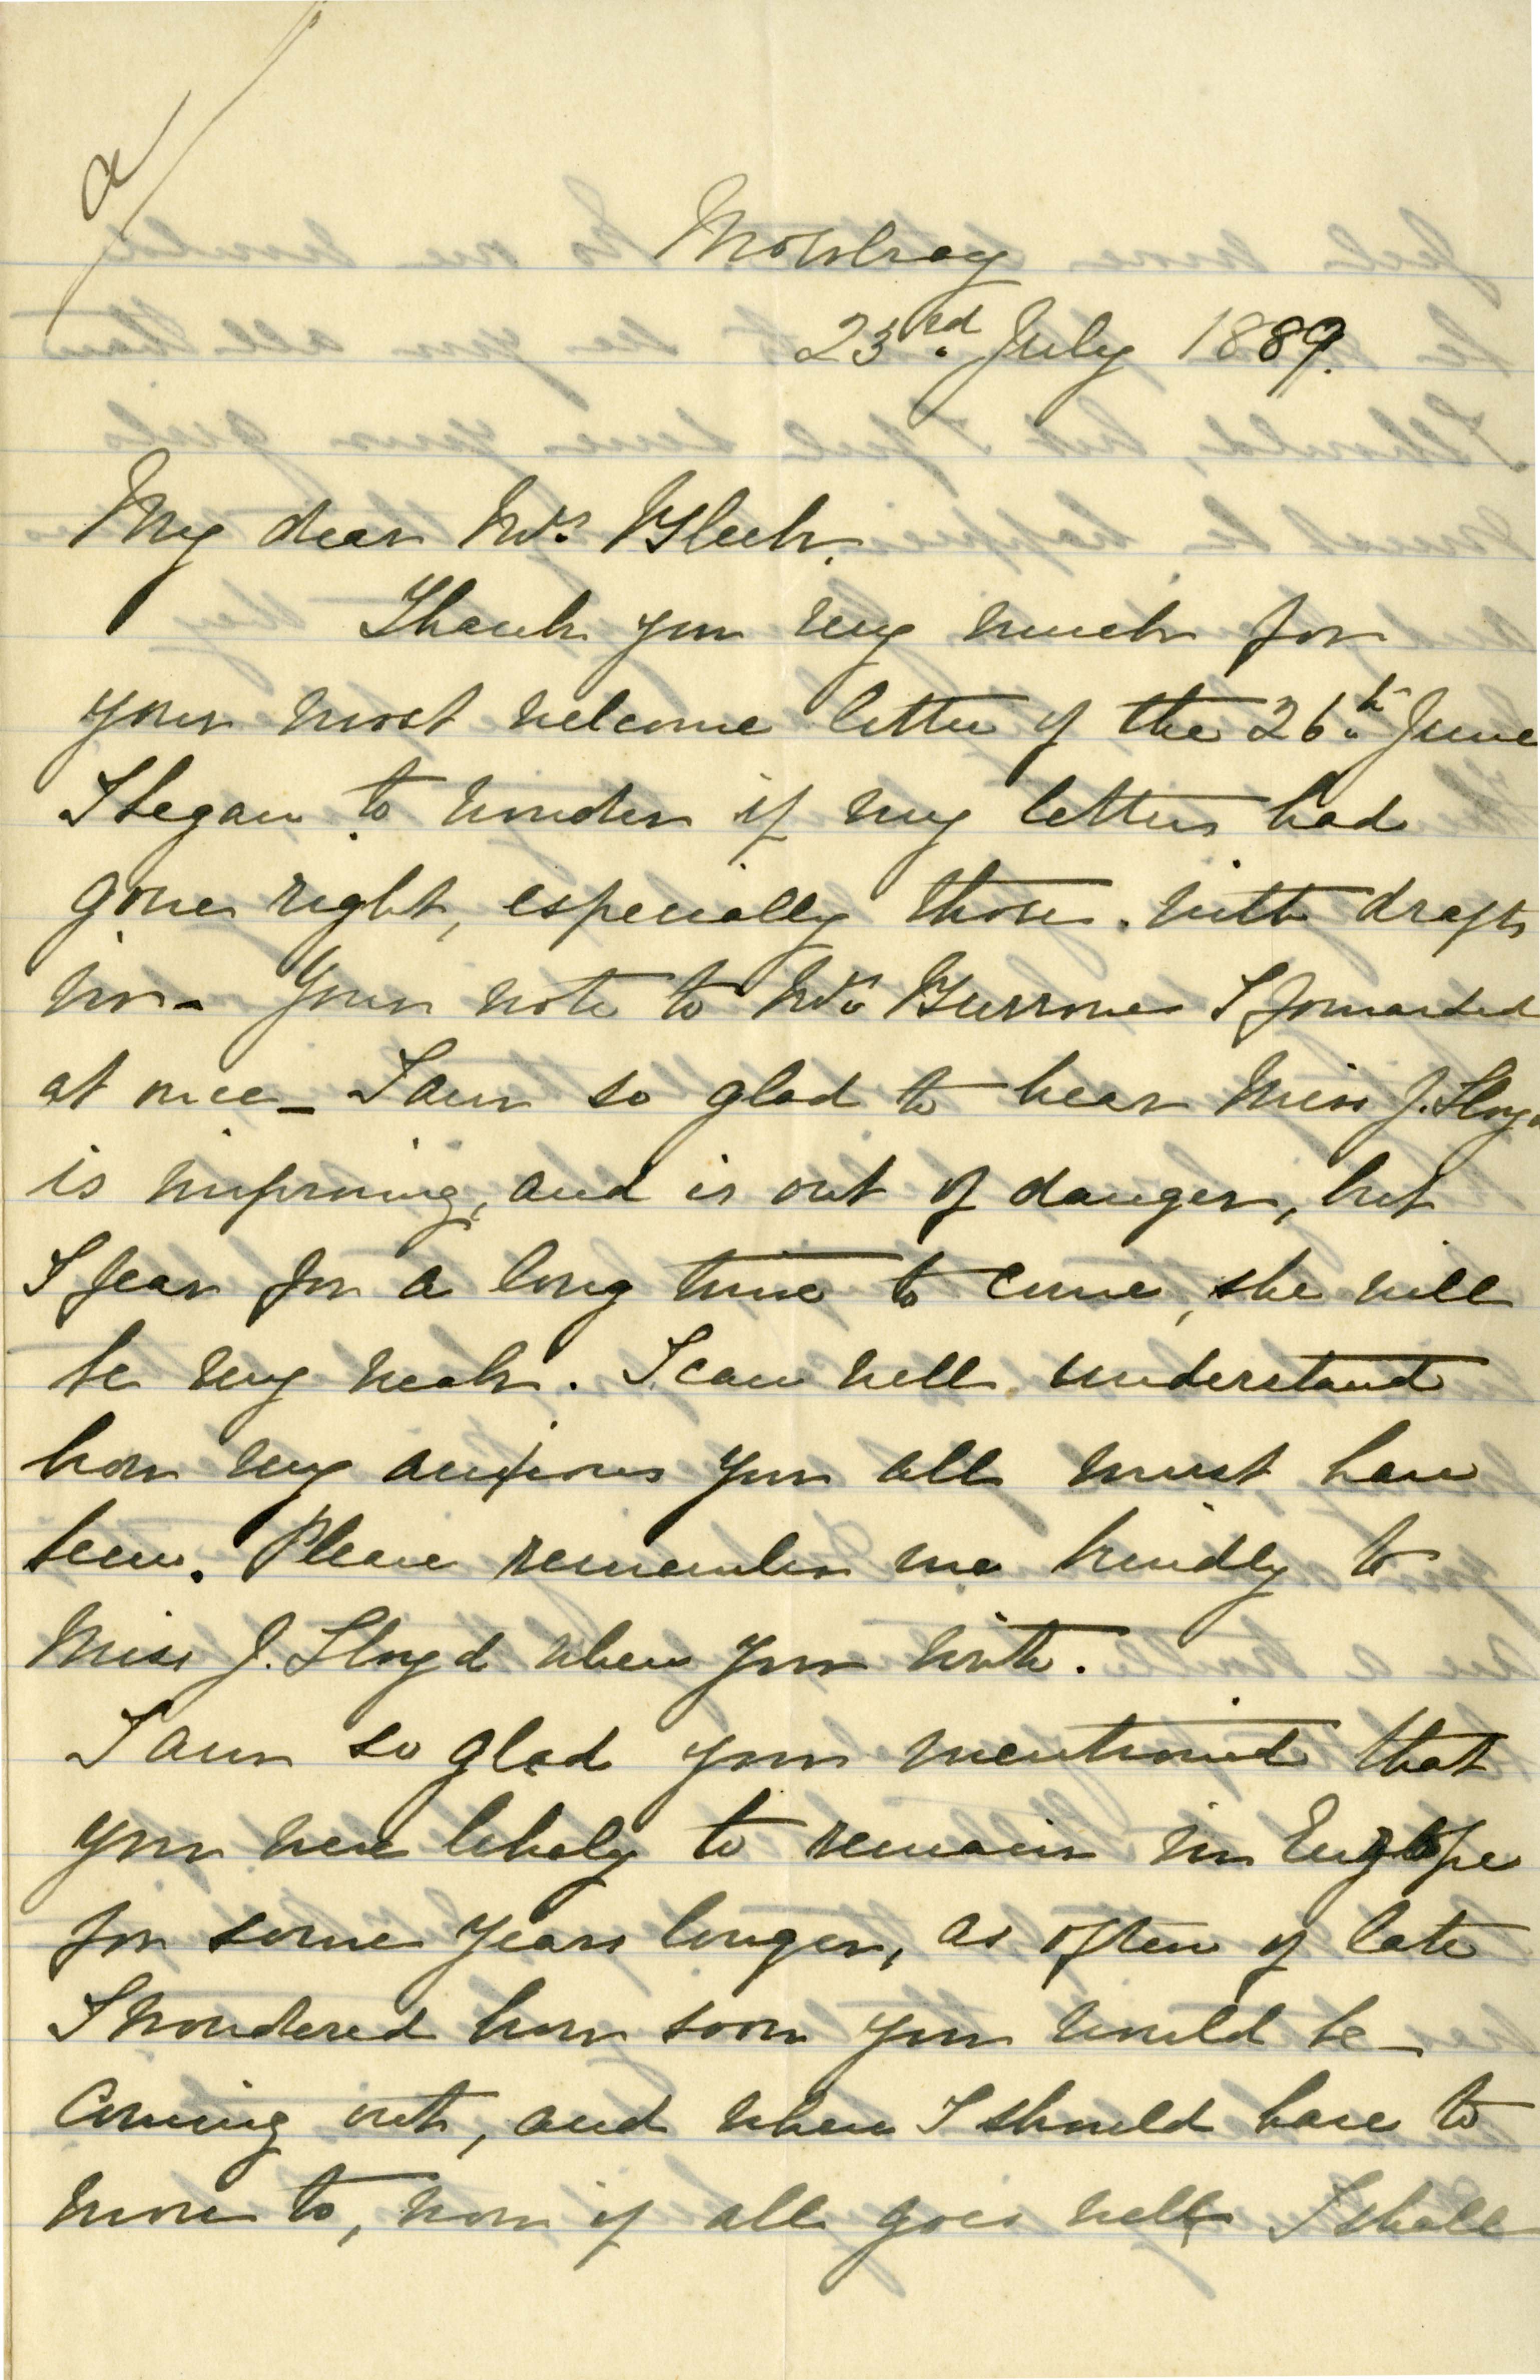 Mowbray
23rd. July 1889.
My dear Mrs. Bleek.
Thank you very much for
your most welcome letter of the 26th. June
I began to wonder if my letters had
gone right, especially those with drafts
in - Your note to Mrs. Burrows I forwarded
at once - I am so glad to hear Miss J. Lloyd
is improving, and is out of danger, but
I fear for a long time to come, she will
be very weak. I can well understand
how very anxious you all must have
been. Please remember me kindly to
Miss J. Lloyd when you write.
I am so glad you mentioned that
you were likely to remain in Europe
for some years longer, as often of late
I wondered how soon you would be
coming out, and when I should have to
move to, now if all goes well I shall